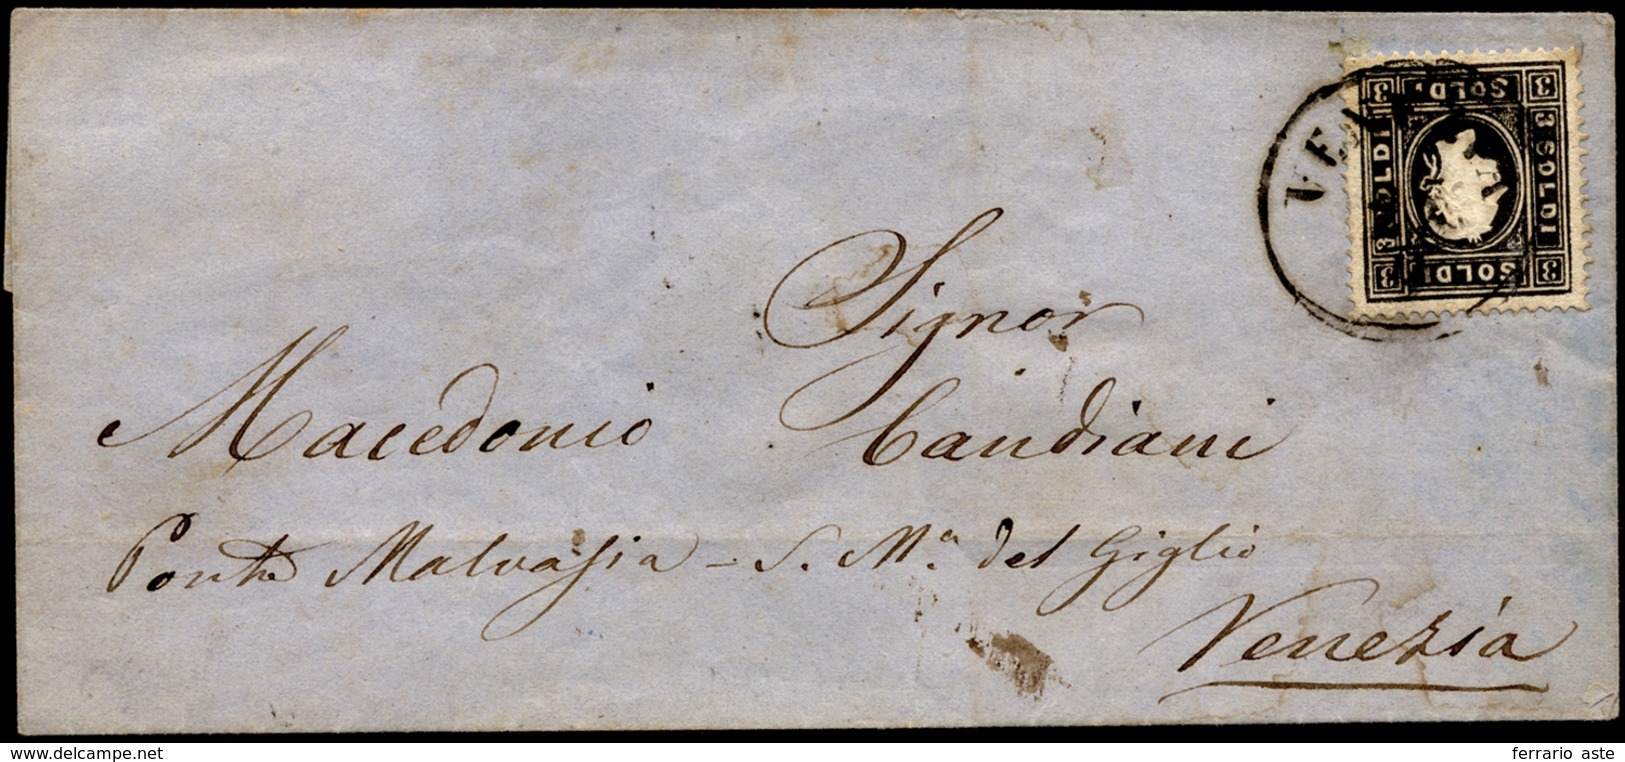 VEN
3 SOLDI 3
3 SOLDI
3 SOLDI
3 SOLDI 3
Signor
Macedonio Candiani
Ponte Malvasia - S. Mª. del Giglio
Venezia
www.delcampe.net
ferrario aste